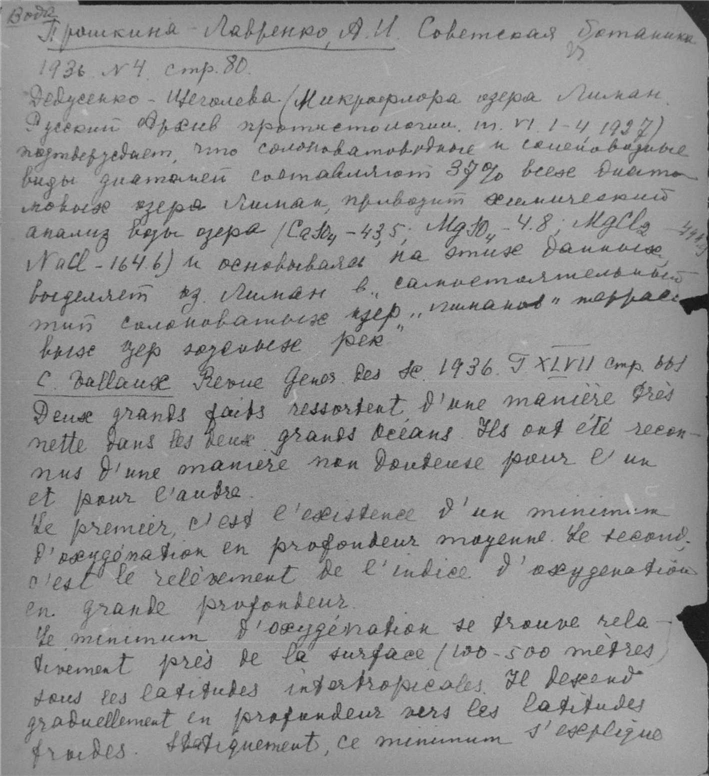 Вода
Прошкина-Лавренко, А.И. Советская ботаника
1936. №4. стр. 80.
Дедусенко-Щеголева (Микрофлора озера Лиман.
Русский Архив протистологии. т. VI. 1-4 1927)
подтверждает, что солоноватоводные и солоноводные
виды диатомей составляют 37% всех диато-
мовых озера Лиман, приводит химический
анализ воды озера (CaSO4 - 43,5; MgSO4 - 4.8; MgCl2
NaCl - 164.6) и основываясь на этих данных,
выделяет оз. Лиман в „самостоятельный
тип солоноватых озер „лиманов" террасо-
вых озер рек"
C. Vallaux Revue Génér. des Sc. 1936. T XLVII стр. 661
Deux grands faits ressortent d'une manière très
nette dans les deux grands Océans. Ils ont été recon-
nus d'une manière non douteuse pour l'un
et pour l'autre.
Le premier, c'est l'existence d'un minimum
d'oxygénation en profondeur moyenne. Le second,
c'est le relèvement de l'indice d'oxygenation
en grande profondeur.
Le minimum d'oxygénation se trouve rela-
tivement près de la surface (100-500 mètres)
sous les latitudes intertropicales. Il descend
graduellement en profondeur vers les latitudes
froides. Statiquement, ce minimum s'explique